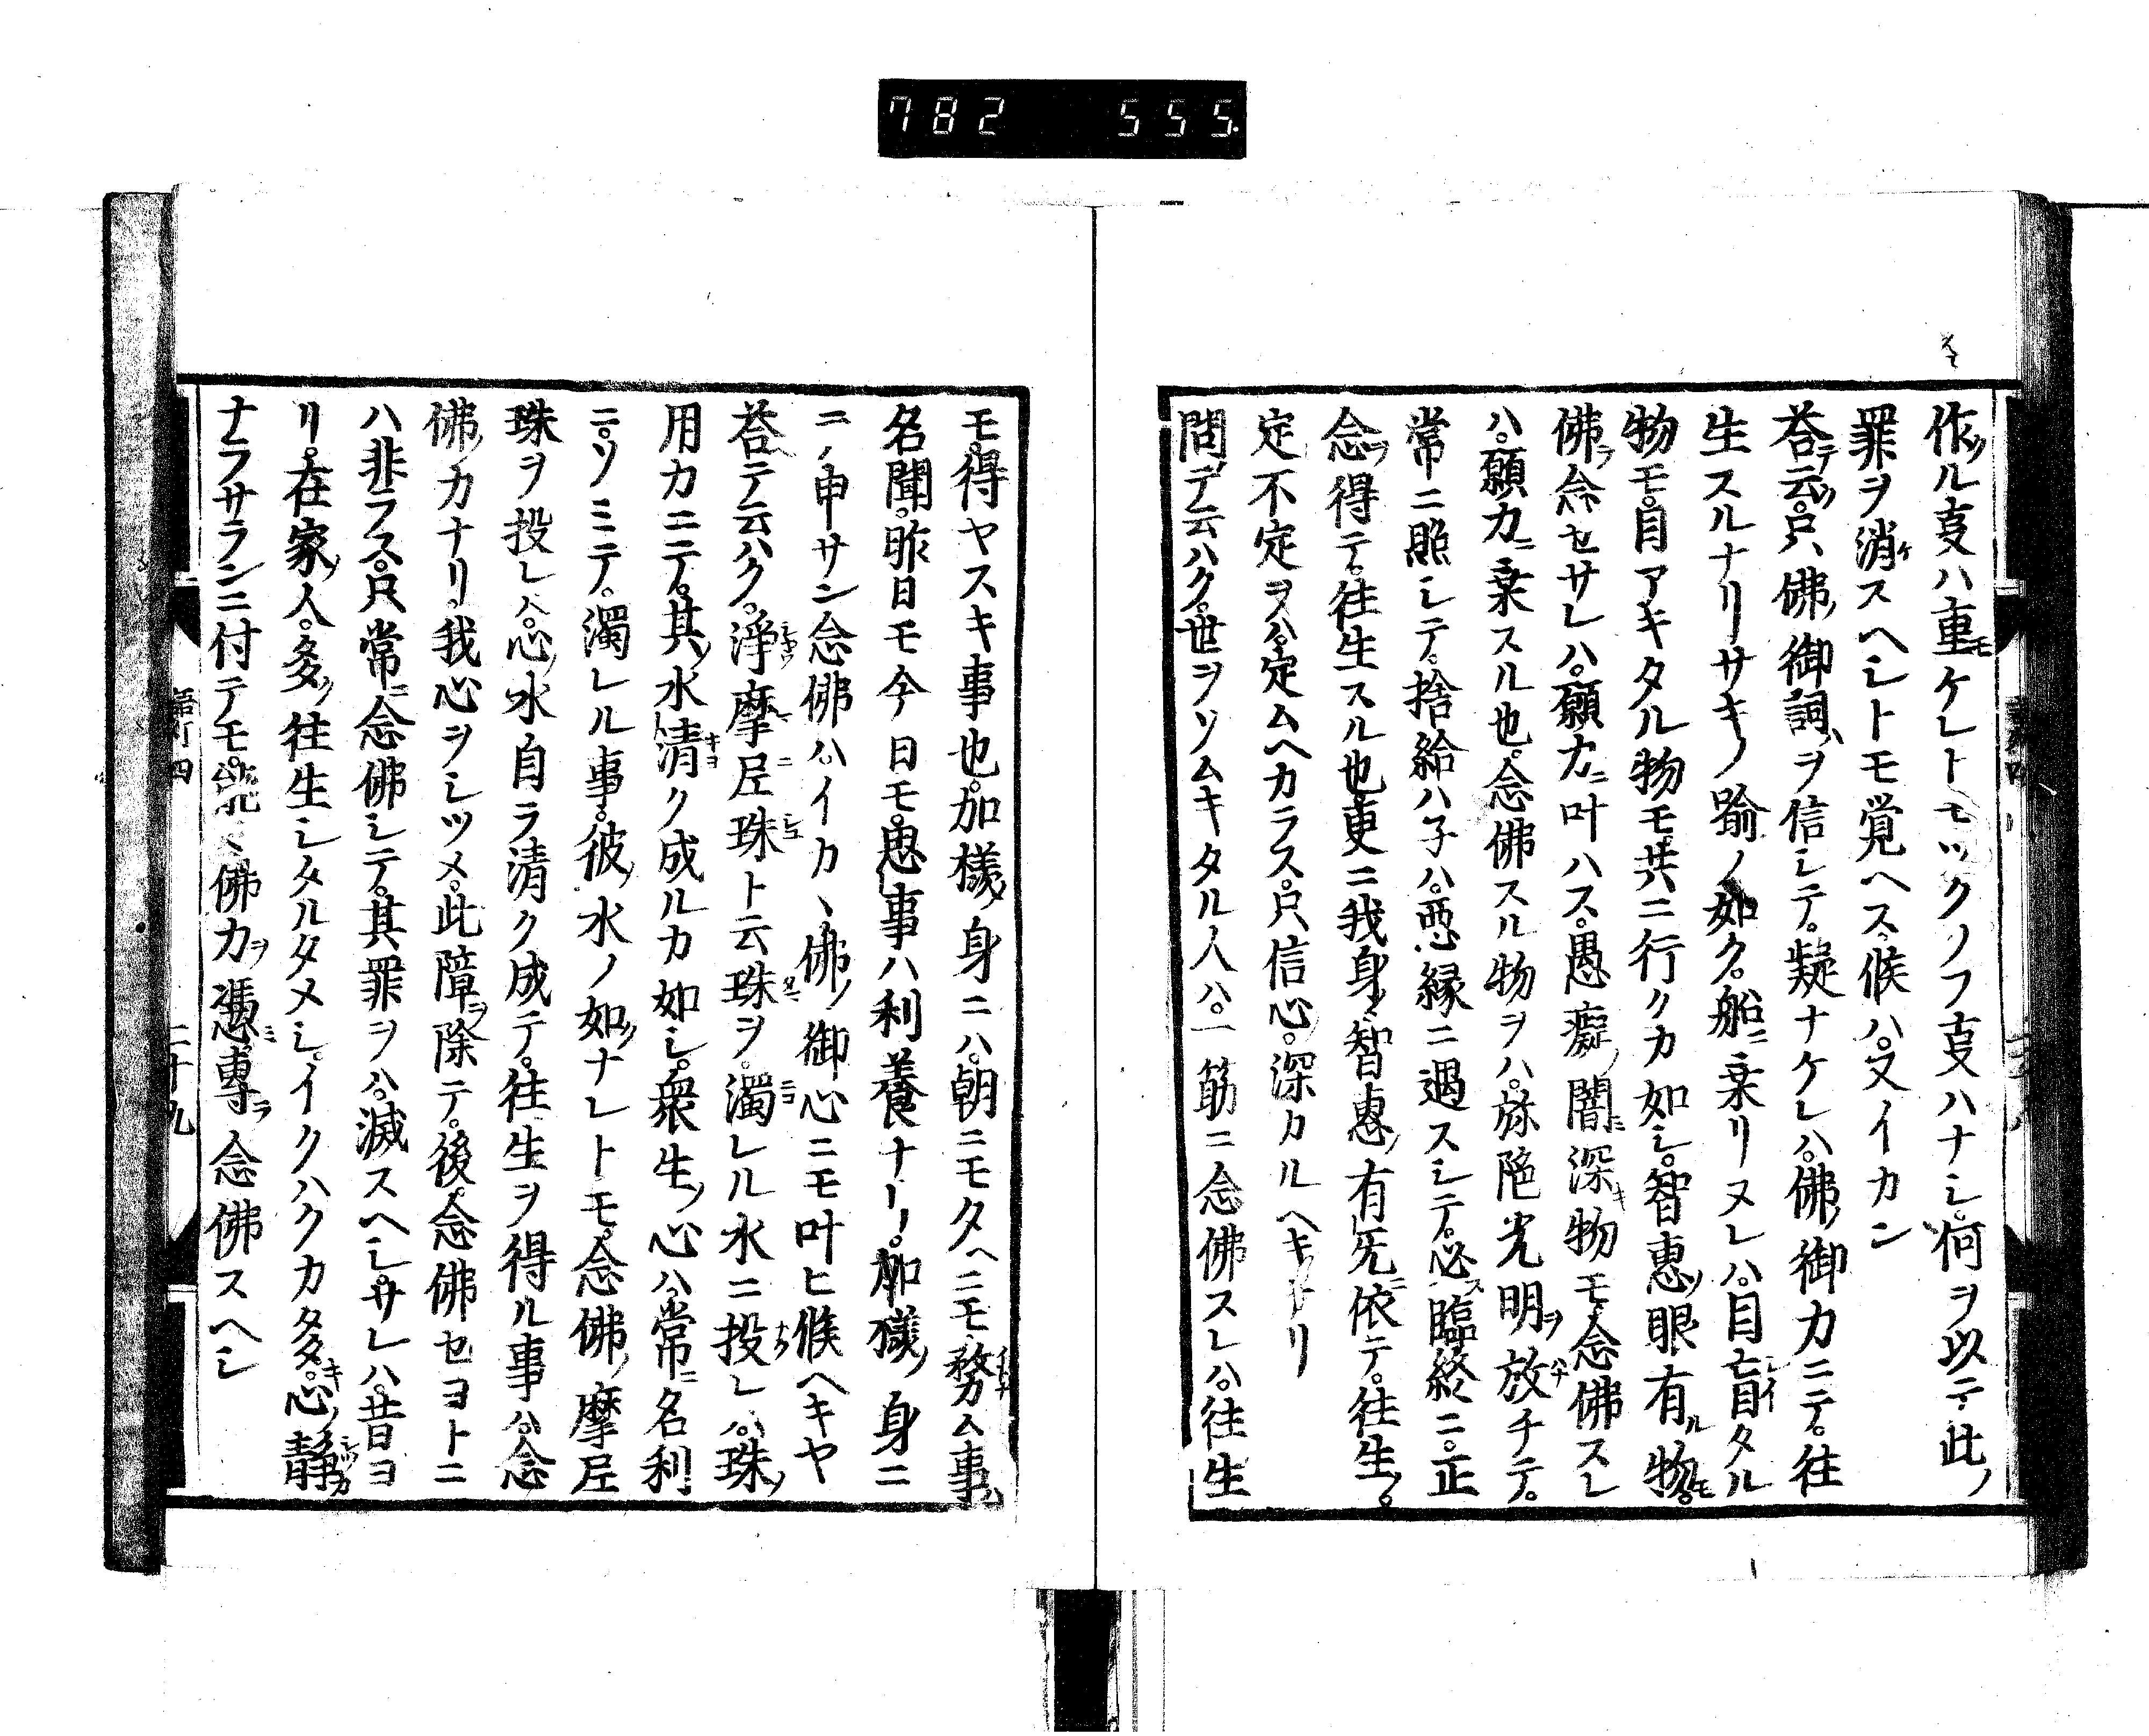 782 555
作ル叓ハ重ケレトモツクノフ叓ハナシ。何ヲ以テ此ノ
罪ヲ消スヘシトモ覚ヘス。候ハ。又イカン
荅テ云ク。只佛ノ御詞ヲ信シテ。疑ナケレハ。佛ノ御力ニテ。往
生スルナリサキノ踰ノ如ク。船ニ乗リヌレハ。目盲タル
物モ。目アキタル物モ。共ニ行クカ如シ。智惠ノ眼有ル物モ。
佛ヲ念セサレハ。願力ニ叶ハス。愚癡ノ闇深キ物モ。念佛スレ
ハ。願力ニ乗スル也。念佛スル物ヲハ。弥陀光明ヲ放チテ。
常ニ照シテ。捨給ハ子ハ。惡縁ニ遇スシテ。必ス臨終ニ。正
念ヲ得テ。往生スル也更ニ我身ノ智惠ノ有无ニ依テ。往生ノ。
定不定ヲハ。定ムヘカラス。只信心。深カルヘキナリ
問テ云ハク。世ヲソムキタル人ハ。一筋ニ念佛スレハ。往生
モ。得ヤスキ事也。加樣ノ身ニハ。朝ニモタヘニモ務ム事ハ
名聞。昨日モ今日モ。思事ハ利養ナリ。加樣ノ身ニ
ニノ申サン念佛ハ。イカヽ佛ノ御心ニモ叶ヒ候ヘキヤ
荅テ云ハク。淨摩尼珠ト云珠ヲ。濁レル水ニ投レハ。珠ノ
用力ニテ。其ノ水清ク成ルカ如シ。衆生ノ心ハ。常ニ名利
ニ。ソミテ。濁レル事。彼ノ水ノ如クナレトモ。念佛ノ摩尼
珠ヲ投レハ。心ノ水自ラ清ク成テ。往生ヲ得ル事ハ。念
佛ノカナリ。我心ヲシツメ。此障ヲ除テ。後念佛セヨトニ
ハ非ラス。只常ニ念佛シテ。其罪ヲハ。滅スヘシ。サレハ。昔ヨ
リ。在家ノ人。多ク往生シタルタメシ。イクハクカ多キ。心ノ静
ナラサランニ付テモ。能〻佛力ヲ憑ミ專ラ念佛スヘシ
二十九